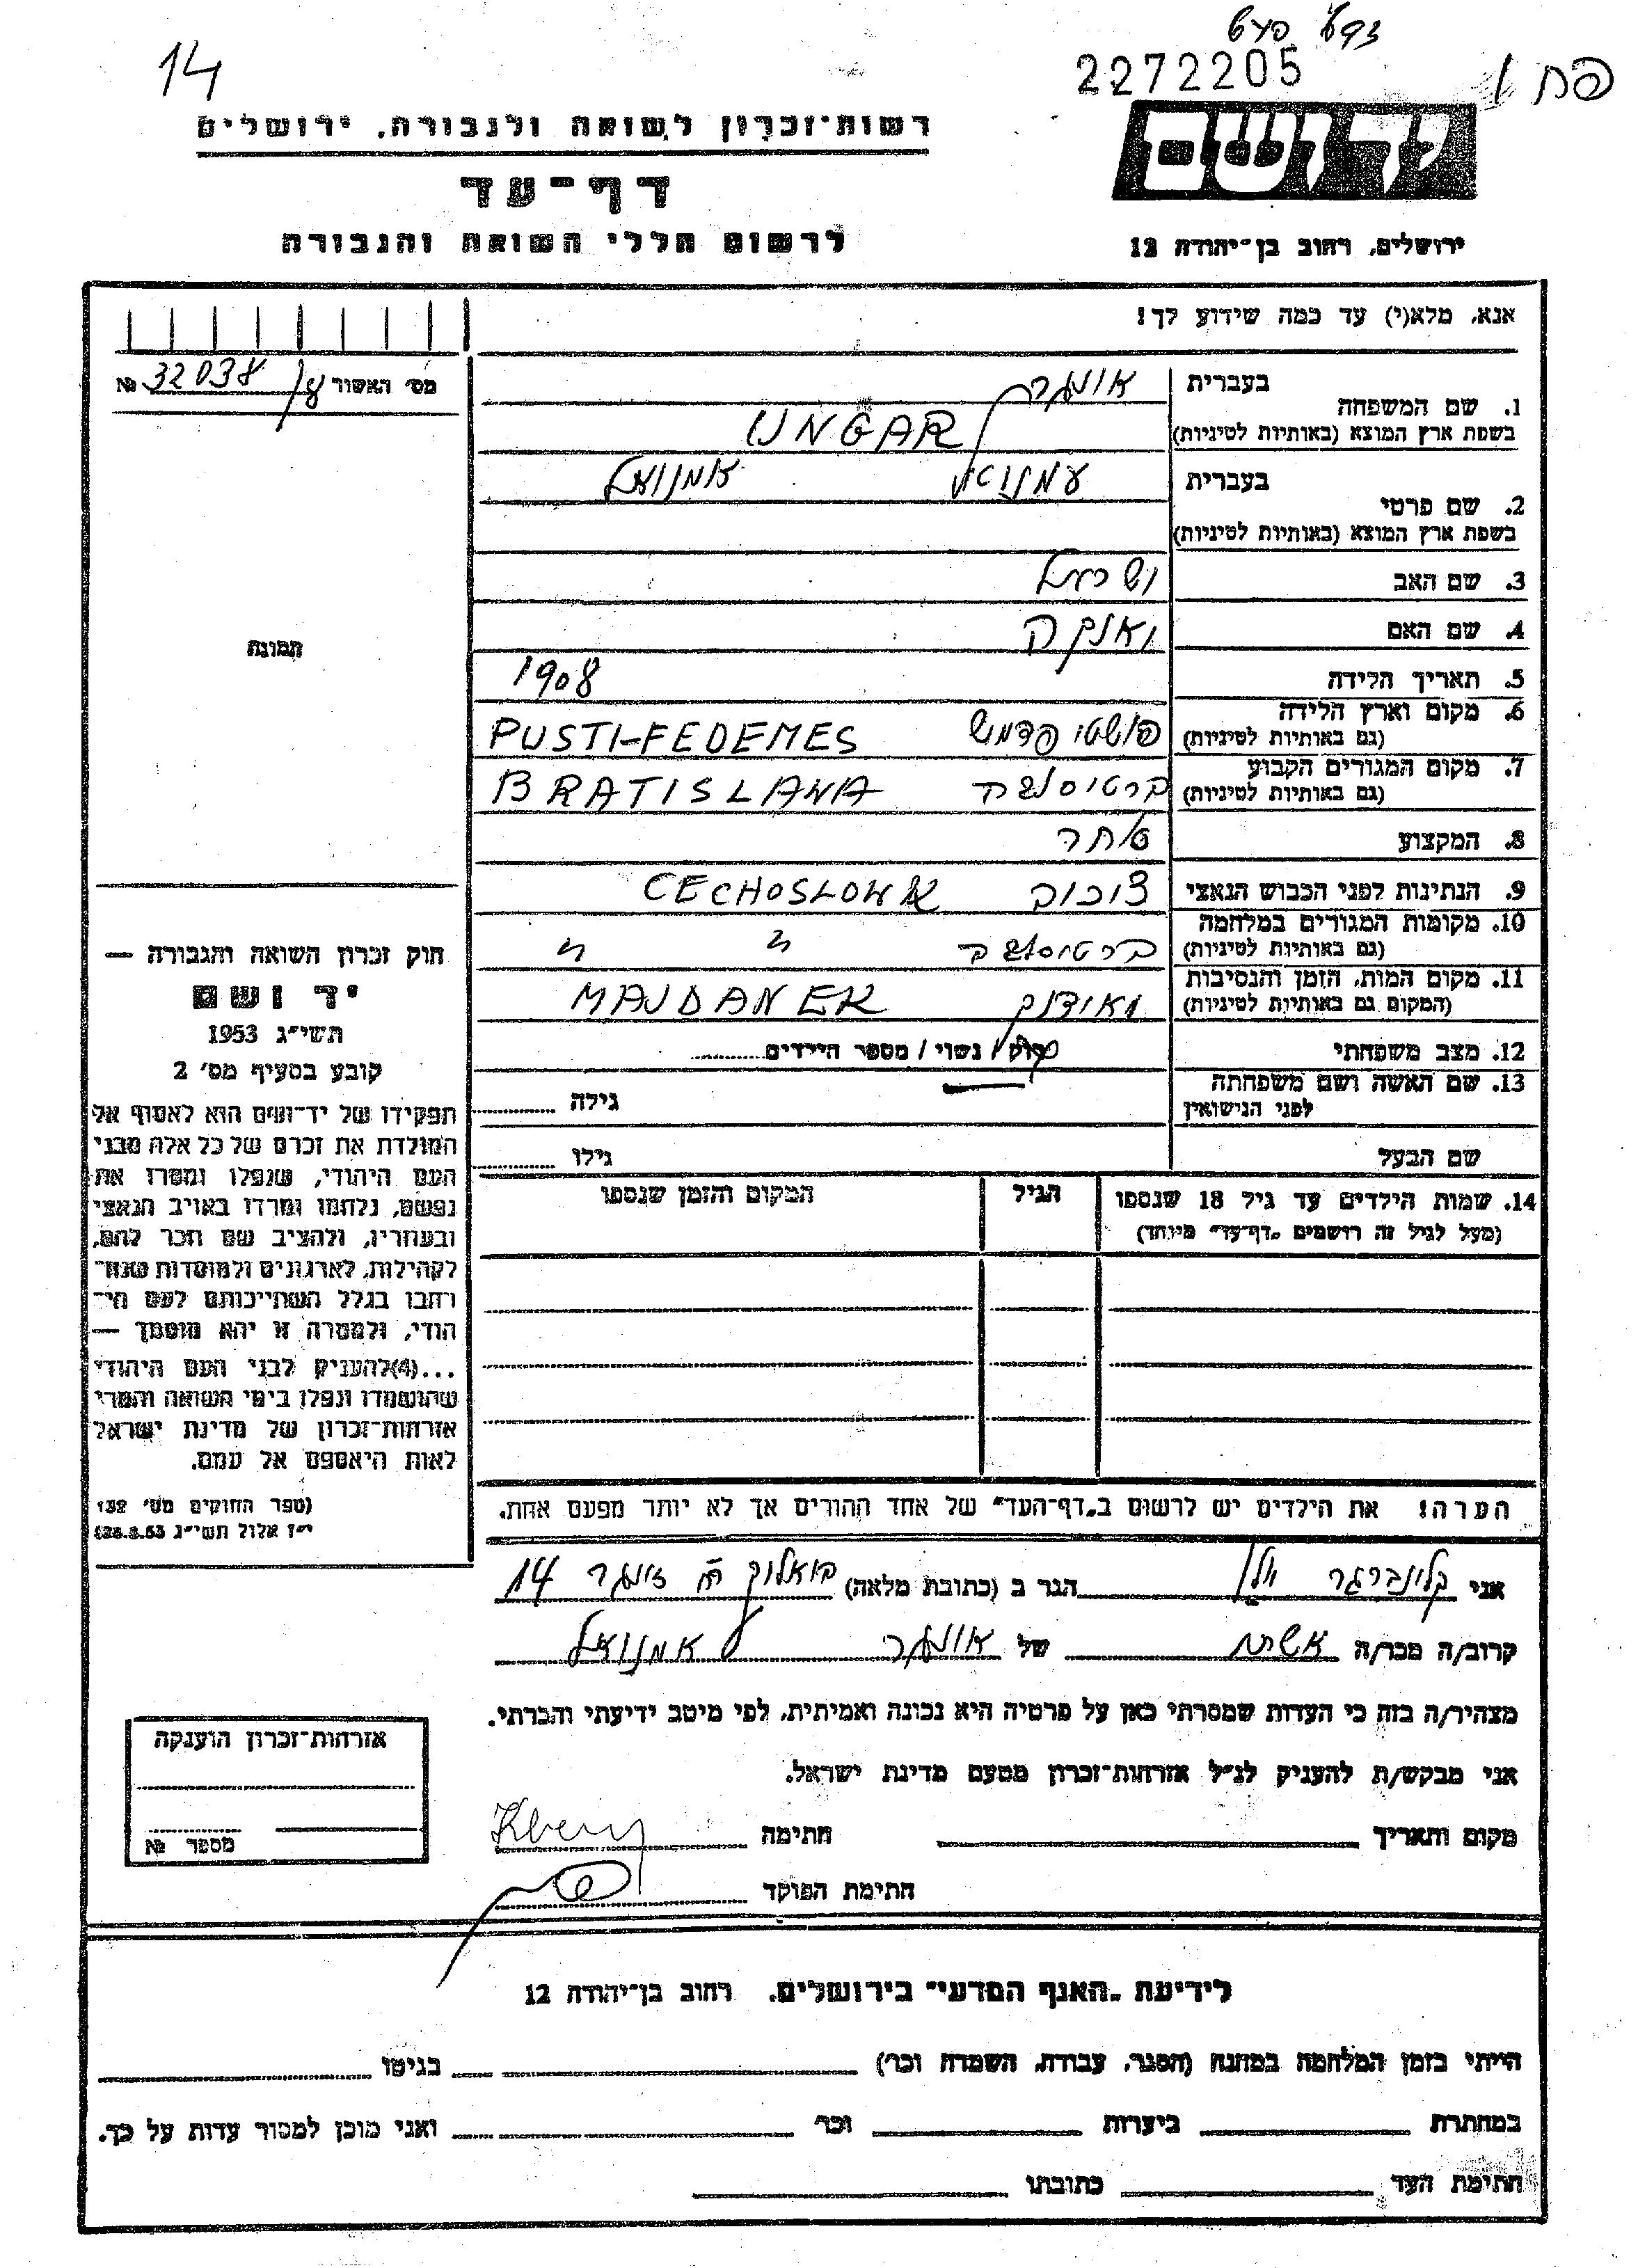 14
2272205
פח 1
רשות-זכרון לשואה ולגבורה, ירושלים
יד ושם
דף-עד
לרשום חללי השואה והגבורה
ירושלים, רחוב בן-יהודה 12
אנא, מלא(י) עד כמה שידוע לך!
מס' האשור № 32038
1. שם המשפחה בעברית אונגר
בשפת ארץ המוצא (באותיות לטיניות) UNGAR
2. שם פרטי בעברית עמנואל אמנואל
בשפת ארץ המוצא (באותיות לטיניות)
3. שם האב ישראל
4. שם האם
תמונה
5. תאריך הלידה 1908
6. מקום וארץ הלידה (גם באותיות לטיניות) פושטי פדמש PUSTI-FEDEMES
7. מקום המגורים הקבוע (גם באותיות לטיניות) ברטיסלבה BRATISLAWA
8. המקצוע סוחר
9. הנתינות לפני הכבוש הנאצי CECHOSLOWAK
10. מקומות המגורים במלחמה (גם באותיות לטיניות) ברטיסלבה " "
11. מקום המות, הזמן והנסיבות (המקום גם באותיות לטיניות) מאידנק MAJDANEK
12. מצב משפחתי רוק / נשוי / מספר הילדים
13. שם האשה ושם משפחתה לפני הנישואין גילה
שם הבעל גילו
14. שמות הילדים עד גיל 18 שנספו הגיל המקום והזמן שנספו
(מעל לגיל זה רושמים "דף-עד" מיוחד)
חוק זכרון השואה והגבורה —
יד ושם
תשי"ג 1953
קובע בסעיף מס' 2
תפקידו של יד-ושם הוא לאסוף אל
המולדת את זכרם של כל אלה מבני
העם היהודי, שנפלו ומסרו את
נפשם, נלחמו ומרדו באויב הנאצי
ובעוזריו, ולהציב שם וזכר להם,
לקהילות, לארגונים ולמוסדות שנח-
רבו בגלל השתייכותם לעם הי-
הודי, ולמטרה זו יהא מוסמך —
...(4)להעניק לבני העם היהודי
שהושמדו ונפלו בימי השואה והמרי
אזרחות-זכרון של מדינת ישראל
לאות היאספם אל עמם.
(ספר החוקים מס' 132
י"ז אלול תשי"ג 28.8.53)
הערה! את הילדים יש לרשום ב"דף-העד" של אחד ההורים אך לא יותר מפעם אחת.
אני קלינברגר הגר ב (כתובת מלאה) 14
קרוב/ה מכר/ה של אונגר אמנואל
מצהיר/ה בזה כי העדות שמסרתי כאן על פרטיה היא נכונה ואמיתית, לפי מיטב ידיעתי והכרתי.
אני מבקש/ת להעניק לנ"ל אזרחות-זכרון מטעם מדינת ישראל.
מקום ותאריך חתימה
חתימת הפוקד
אזרחות-זכרון הוענקה
מספר №
לידיעת "האגף המדעי" בירושלים, רחוב בן-יהודה 12
הייתי בזמן המלחמה במחנה (הסגר, עבודה, השמדה וכו') בגיטו
במחתרת ביערות וכו' ואני מוכן למסור עדות על כך.
חתימת העד כתובתו